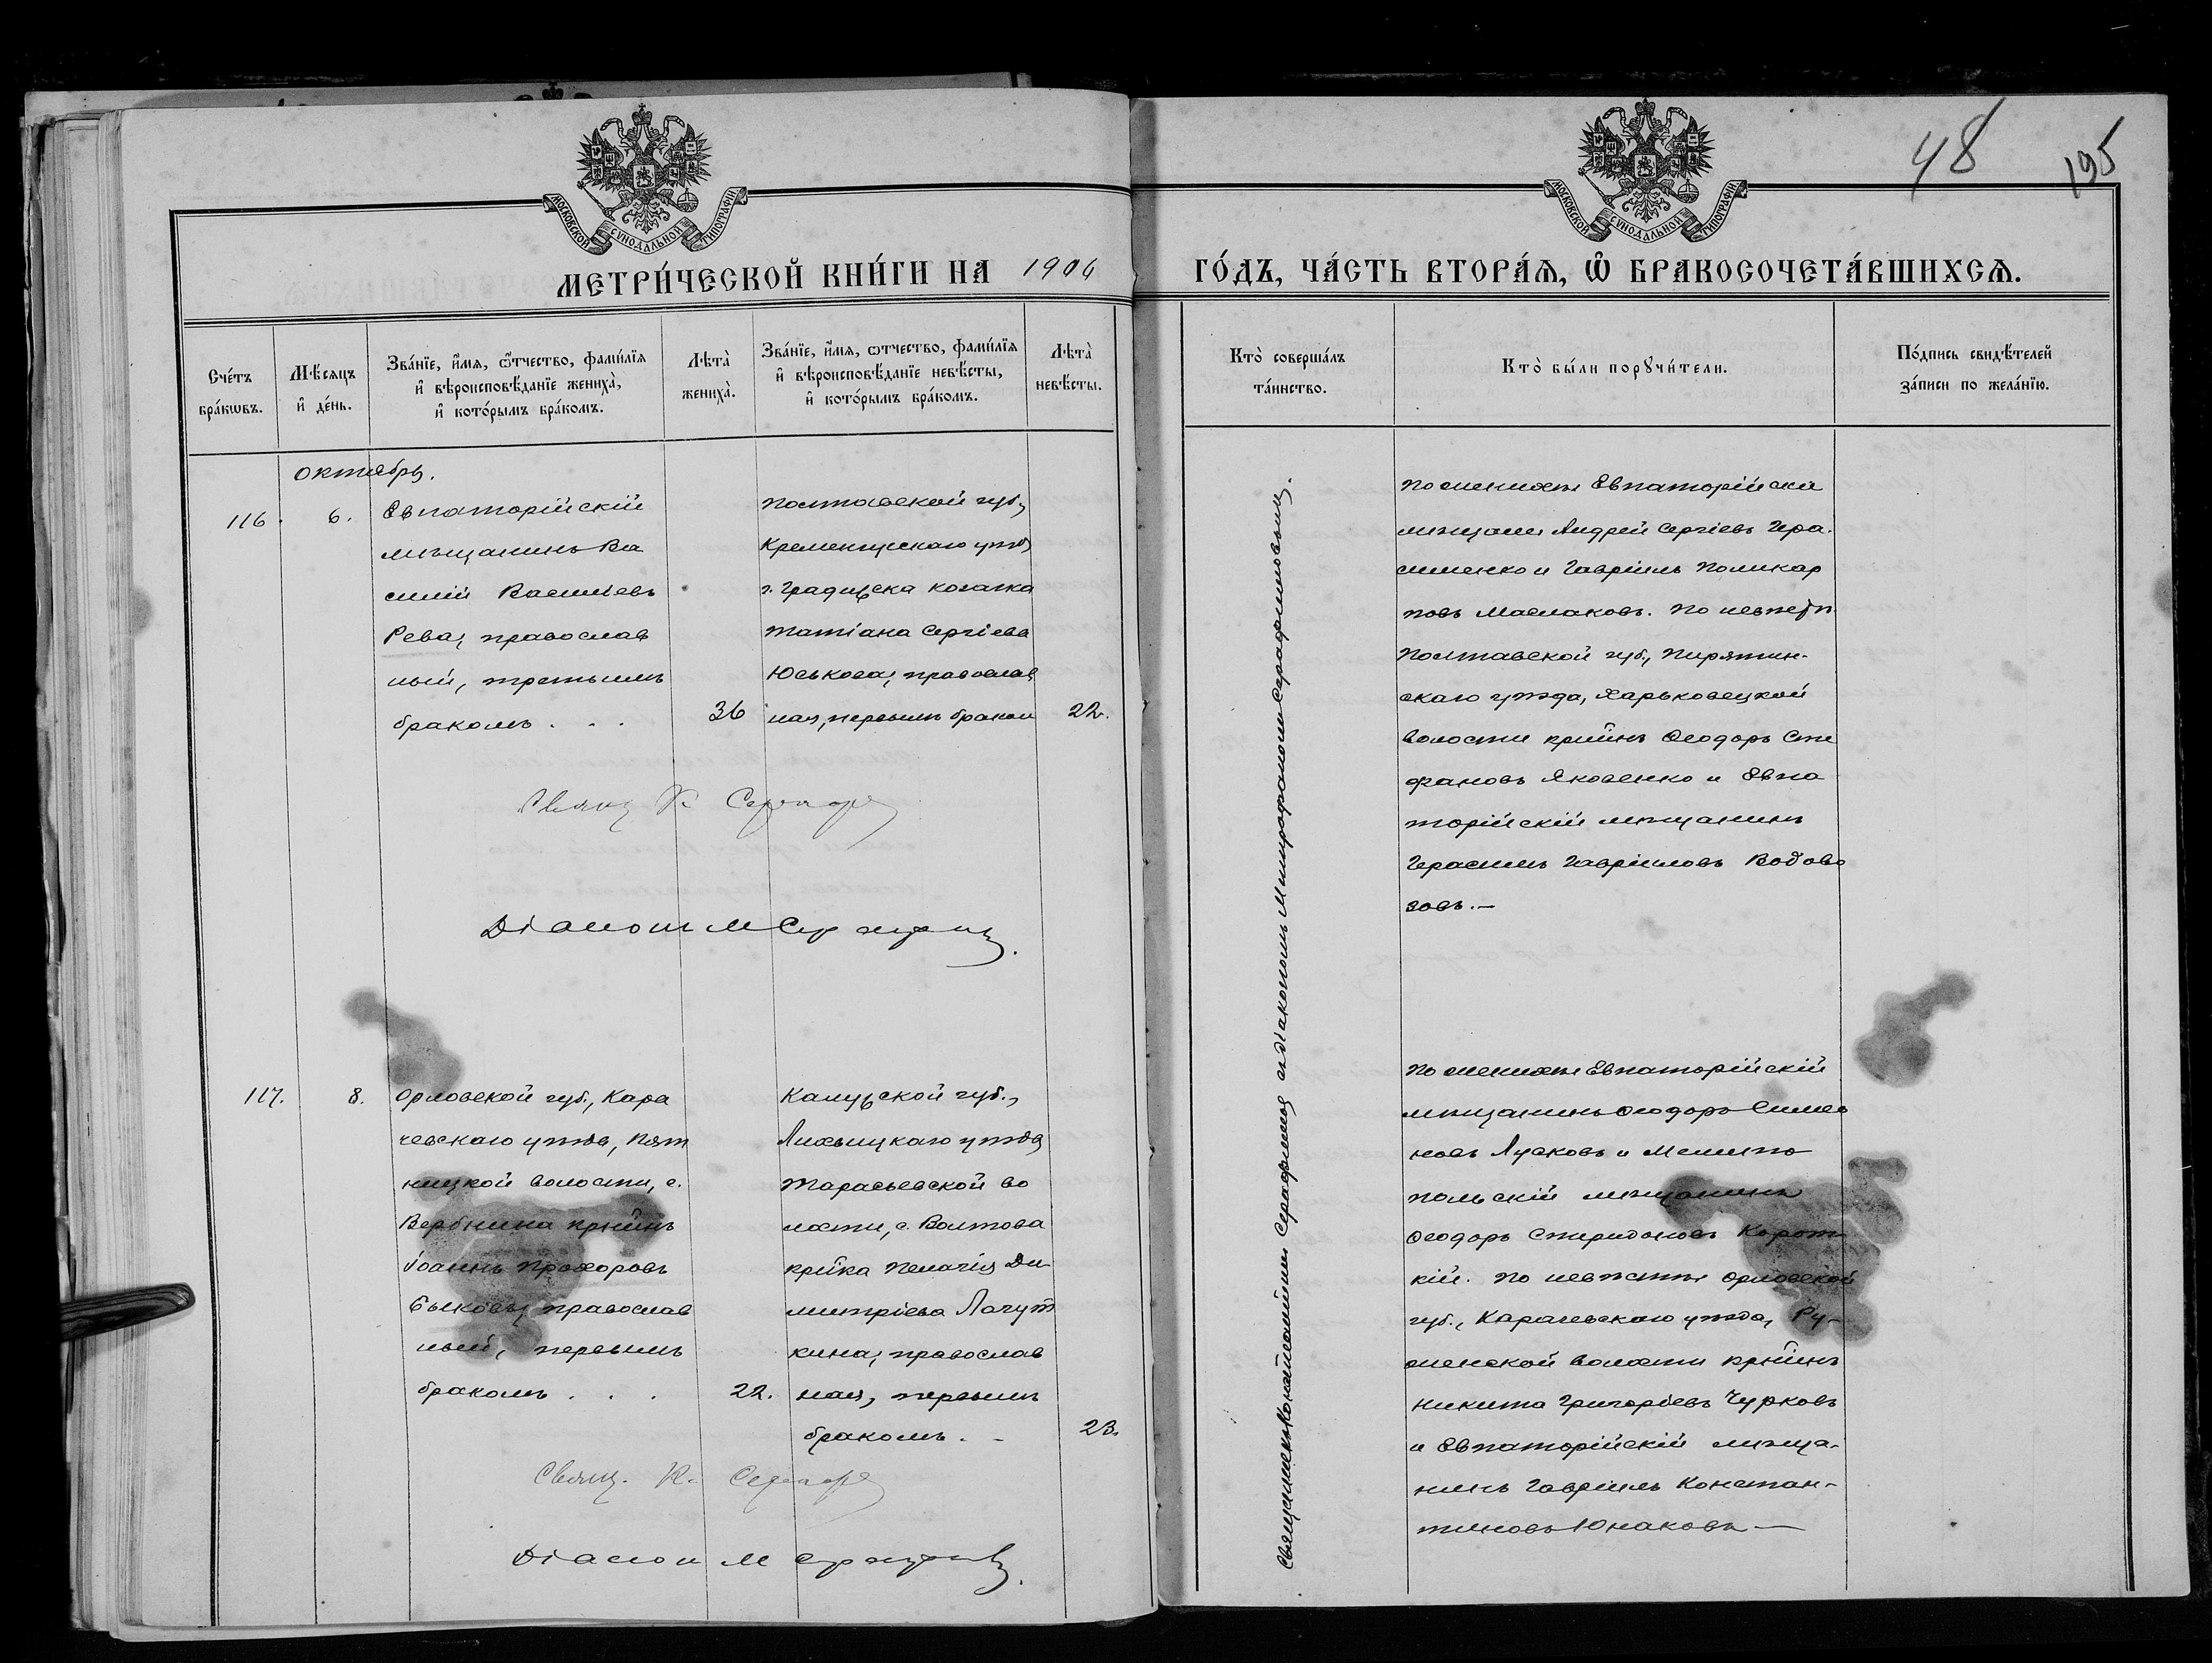 48
195
МОСКОВСКОЙ СУНОДАЛЬНОЙ ТИПОГРАФІИ
МОСКОВСКОЙ СУНОДАЛЬНОЙ ТИПОГРАФІИ
МЕТРИ́ЧЕСКОЙ КНИ́ГИ НА 1906
ГО́ДЪ, ЧА́СТЬ ВТОРА́Ѧ, Ѡ҆ БРАКОСОЧЕТА́ВШИХСѦ.
Сче́тъ
бра́кѡвъ.
Мѣ́сяцъ
и҆ де́нь.
Зва́нїе, и҆́мя, ѻ҆́тчество, фами́лїя
и҆ вѣроисповѣ́данїе жениха̀,
и҆ кото́рымъ бра́комъ.
Лѣта̀
жениха̀.
Зва́нїе, и҆́мя, ѻтчество, фами́лїя
и҆ вѣроисповѣ́данїе невѣ́сты,
и҆ кото́рымъ бра́комъ.
Лѣта̀
невѣ́сты.
Кто̀ соверша́лъ
та́инство.
Кто̀ бы́ли порꙋчи́тели.
По́дпись свидѣ́телей
за́писи по жела́нїю.
октябрь.
116.
6.
Евпаторійскій
мѣщанинъ Ва
силій Васильевъ
Рева, православ
ный, третьимъ
бракомъ . . .
36
Полтавской губ,
Кременчугскаго уѣзд
г. Градижска козачка
Татіана Сергіева
Юськова, православ
ная, первымъ браком
22.
Свящ К. Серафи
Діаконъ М Серафимов.
Священникъ Константинъ Серафимов съ діакономъ Митрофаномъ Серафимовымъ.
По женихѣ Евпаторійскіе
мѣщане Андрей Сергіевъ Гера.
сименко и Гавріилъ Поликар
повъ Маслаковъ. По невѣстѣ
Полтавской губ., Пирятин-
скаго уѣзда, Харьковецкой
волости крнинъ Ѳеодоръ Сте
фановъ Яковенко и Евпа
торійскій мѣщанинъ
Герасимъ Гавріиловъ Водово
зовъ.—
117.
8.
Орловской губ., Кара
чевскаго уѣзда, Пят
ницкой волости, с.
Вербника крнинъ
Іоаннъ Прохоровъ
Быковъ, православ
ный, первымъ
бракомъ . . .
22.
Калужской губ.,
Лихвицкаго уѣзда
Тарасьевской во
лости, с. Волтова
крнка Пелагія Ди-
митріева Лагут
кина, православ
ная, первымъ
бракомъ . -
23.
Свящ. К. Серафи
Діакон М Серафимов.
По женихѣ Евпаторійскій
мѣщанинъ Ѳеодоръ Симео
новъ Лусковъ и Мелито
польскій мѣщанинъ
Ѳеодоръ Спиридоновъ Корот-
кій. По невѣстѣ Орловской
губ., Карачевскаго уѣзда, Ру-
женской волости крнинъ
Никита Григоріевъ Чурковъ
и Евпаторійскій мѣща-
нинъ Гавріилъ Констан-
тиновъ Юнаковъ —